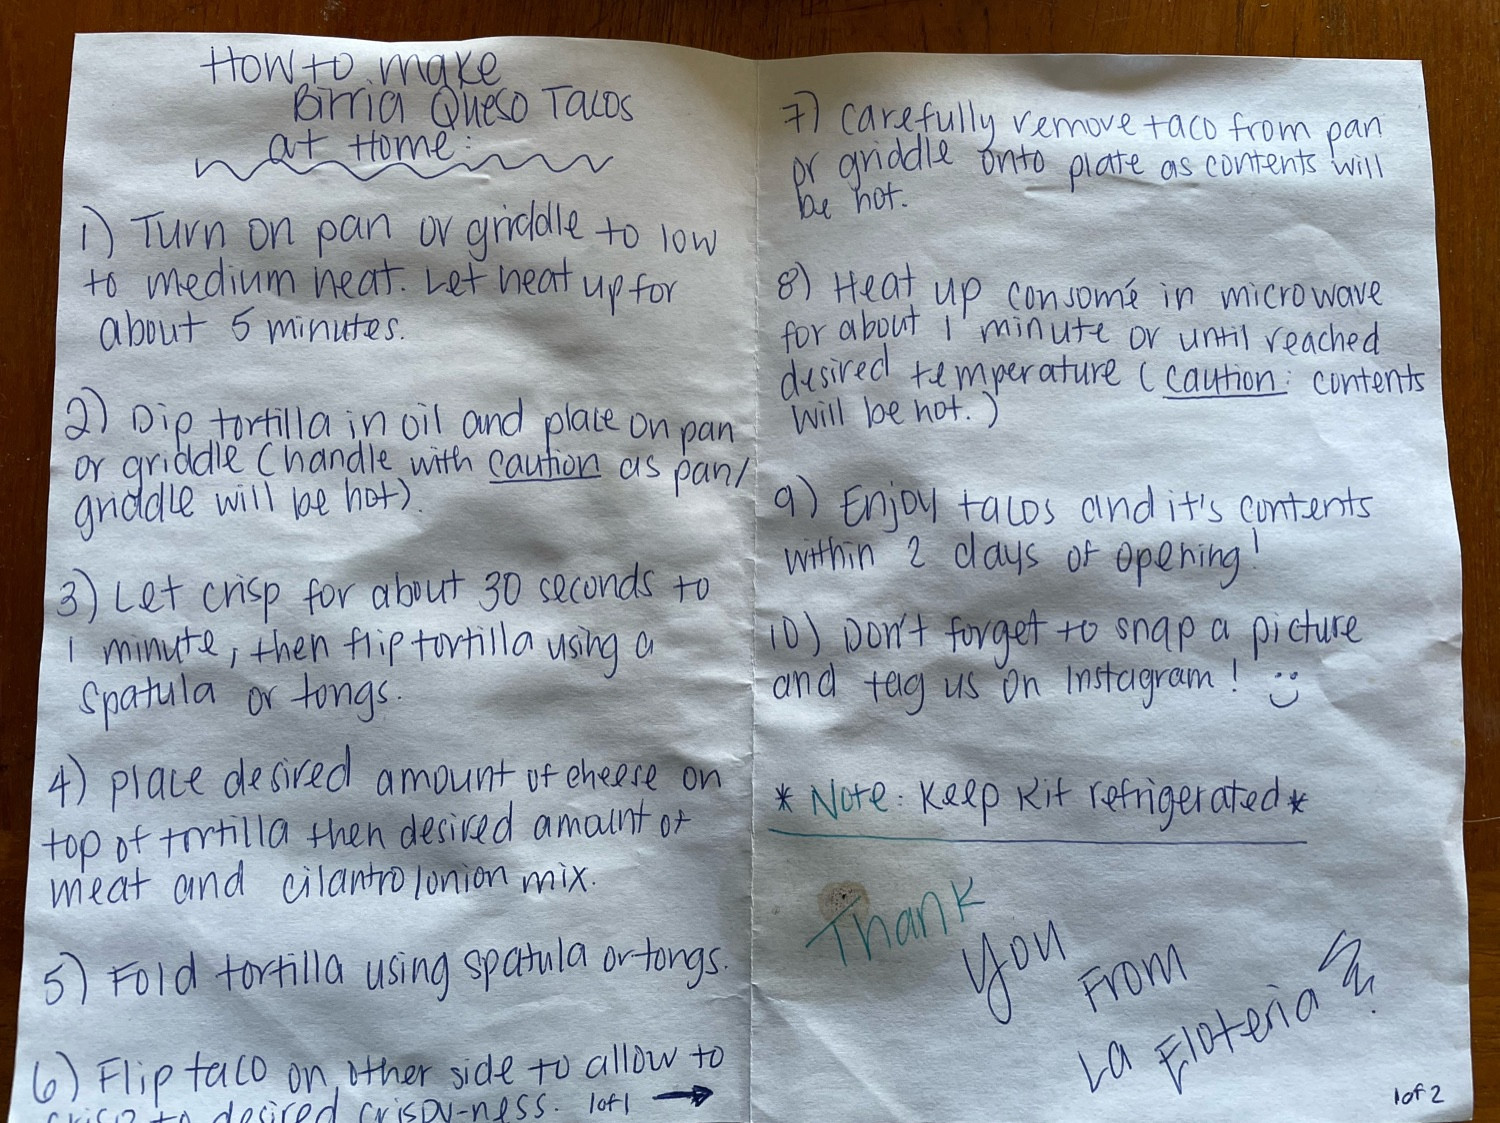 How to make
Birria Queso Tacos
at Home:
1) Turn on pan or griddle to low
to medium heat. Let heat up for
about 5 minutes.
2) Dip tortilla in oil and place on pan
or griddle (handle with caution as pan/
griddle will be hot).
3) Let crisp for about 30 seconds to
1 minute, then flip tortilla using a
spatula or tongs.
4) Place desired amount of cheese on
top of tortilla then desired amount of
meat and cilantro/onion mix.
5) Fold tortilla using spatula or tongs.
6) Flip taco on other side to allow to
crisp to desired crispy-ness. 1of1 →
7) Carefully remove taco from pan
or griddle onto plate as contents will
be hot.
8) Heat up consomé in microwave
for about 1 minute or until reached
desired temperature (caution: contents
will be hot.)
9) Enjoy tacos and it's contents
within 2 days of opening!
10) Don't forget to snap a picture
and tag us on Instagram! :)
* Note: Keep kit refrigerated *
Thank
you
From
La Eloteria
1of2